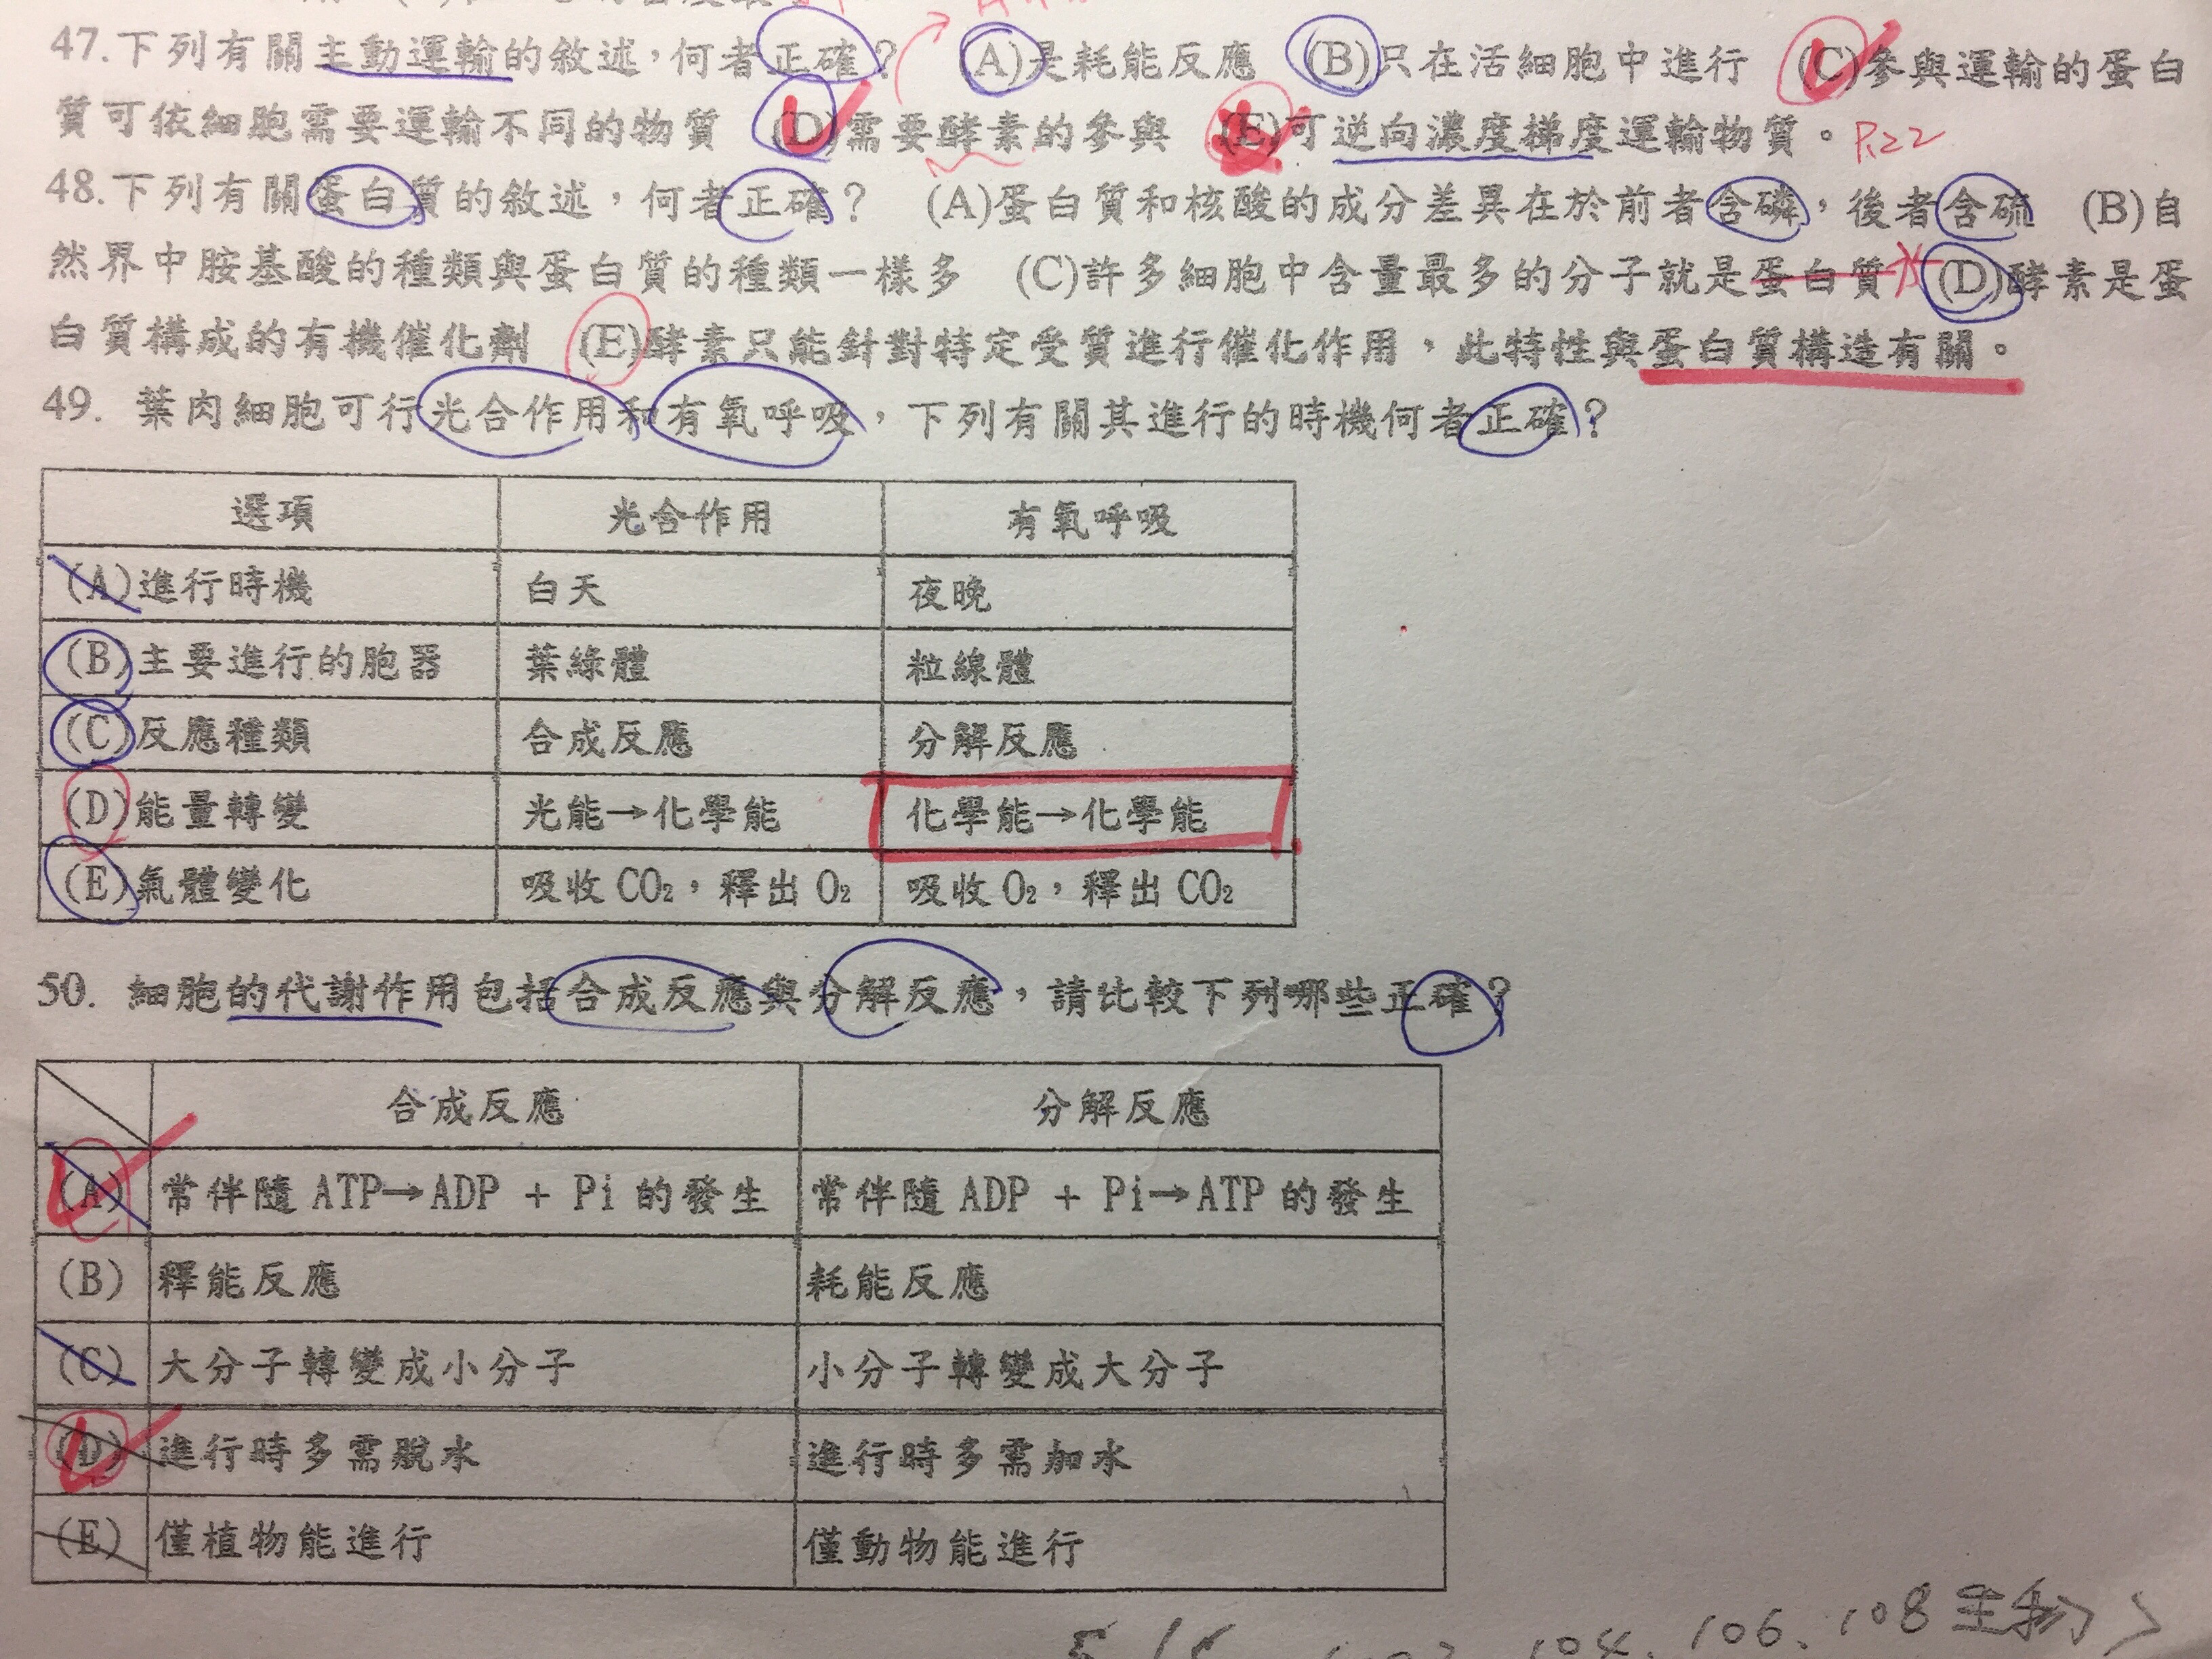 47.下列有關主動運輸的敘述,何者正確? (A)是耗能反應 (B)只在活細胞中進行 (C)參與運輸的蛋白
質可依細胞需要運輸不同的物質 (D)需要酵素的參與 (E)可逆向濃度梯度運輸物質。P.22
48.下列有關蛋白質的敘述,何者正確? (A)蛋白質和核酸的成分差異在於前者含磷,後者含硫 (B)自
然界中胺基酸的種類與蛋白質的種類一樣多 (C)許多細胞中含量最多的分子就是蛋白質 水 (D)酵素是蛋
白質構成的有機催化劑 (E)酵素只能針對特定受質進行催化作用,此特性與蛋白質構造有關。
49. 葉肉細胞可行光合作用和有氧呼吸,下列有關其進行的時機何者正確?
選項 光合作用 有氧呼吸
(A)進行時機 白天 夜晚
(B)主要進行的胞器 葉綠體 粒線體
(C)反應種類 合成反應 分解反應
(D)能量轉變 光能→化學能 化學能→化學能
(E)氣體變化 吸收 CO₂,釋出 O₂ 吸收 O₂,釋出 CO₂
50. 細胞的代謝作用包括合成反應與分解反應,請比較下列哪些正確?
合成反應 分解反應
(A) 常伴隨 ATP→ADP + Pi 的發生 常伴隨 ADP + Pi→ATP 的發生
(B) 釋能反應 耗能反應
(C) 大分子轉變成小分子 小分子轉變成大分子
(D) 進行時多需脫水 進行時多需加水
(E) 僅植物能進行 僅動物能進行
104、106、108生物